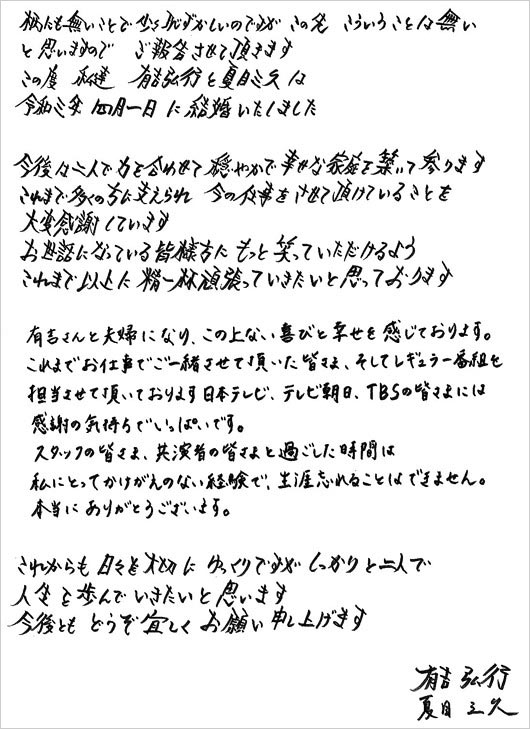 柄にも無いことで少々恥ずかしいのですが この先 こういうことは無い
と思いますので ご報告させて頂きます
この度 私達 有吉弘行と夏目三久は
令和三年 四月一日 に結婚いたしました
今後は二人で力を合わせて穏やかで幸せな家庭を築いて参ります
これまで多くの方に支えられ 今の仕事をさせて頂けていることを
大変感謝しています
お世話になっている皆様方に もっと笑っていただけるよう
これまで以上に 精一杯頑張っていきたいと思っております
有吉さんと夫婦になり、この上ない喜びと幸せを感じております。
これまでお仕事でご一緒させて頂いた皆さま、そしてレギュラー番組を
担当させて頂いております日本テレビ、テレビ朝日、TBSの皆さまには
感謝の気持ちでいっぱいです。
スタッフの皆さま、共演者の皆さまと過ごした時間は
私にとってかけがえのない経験で、生涯忘れることはできません。
本当にありがとうございます。
これからも 日々を大切に ゆっくりですが しっかりと二人で
人生を歩んでいきたいと思います
今後とも どうぞ宜しく お願い申し上げます
有吉 弘行
夏目 三久